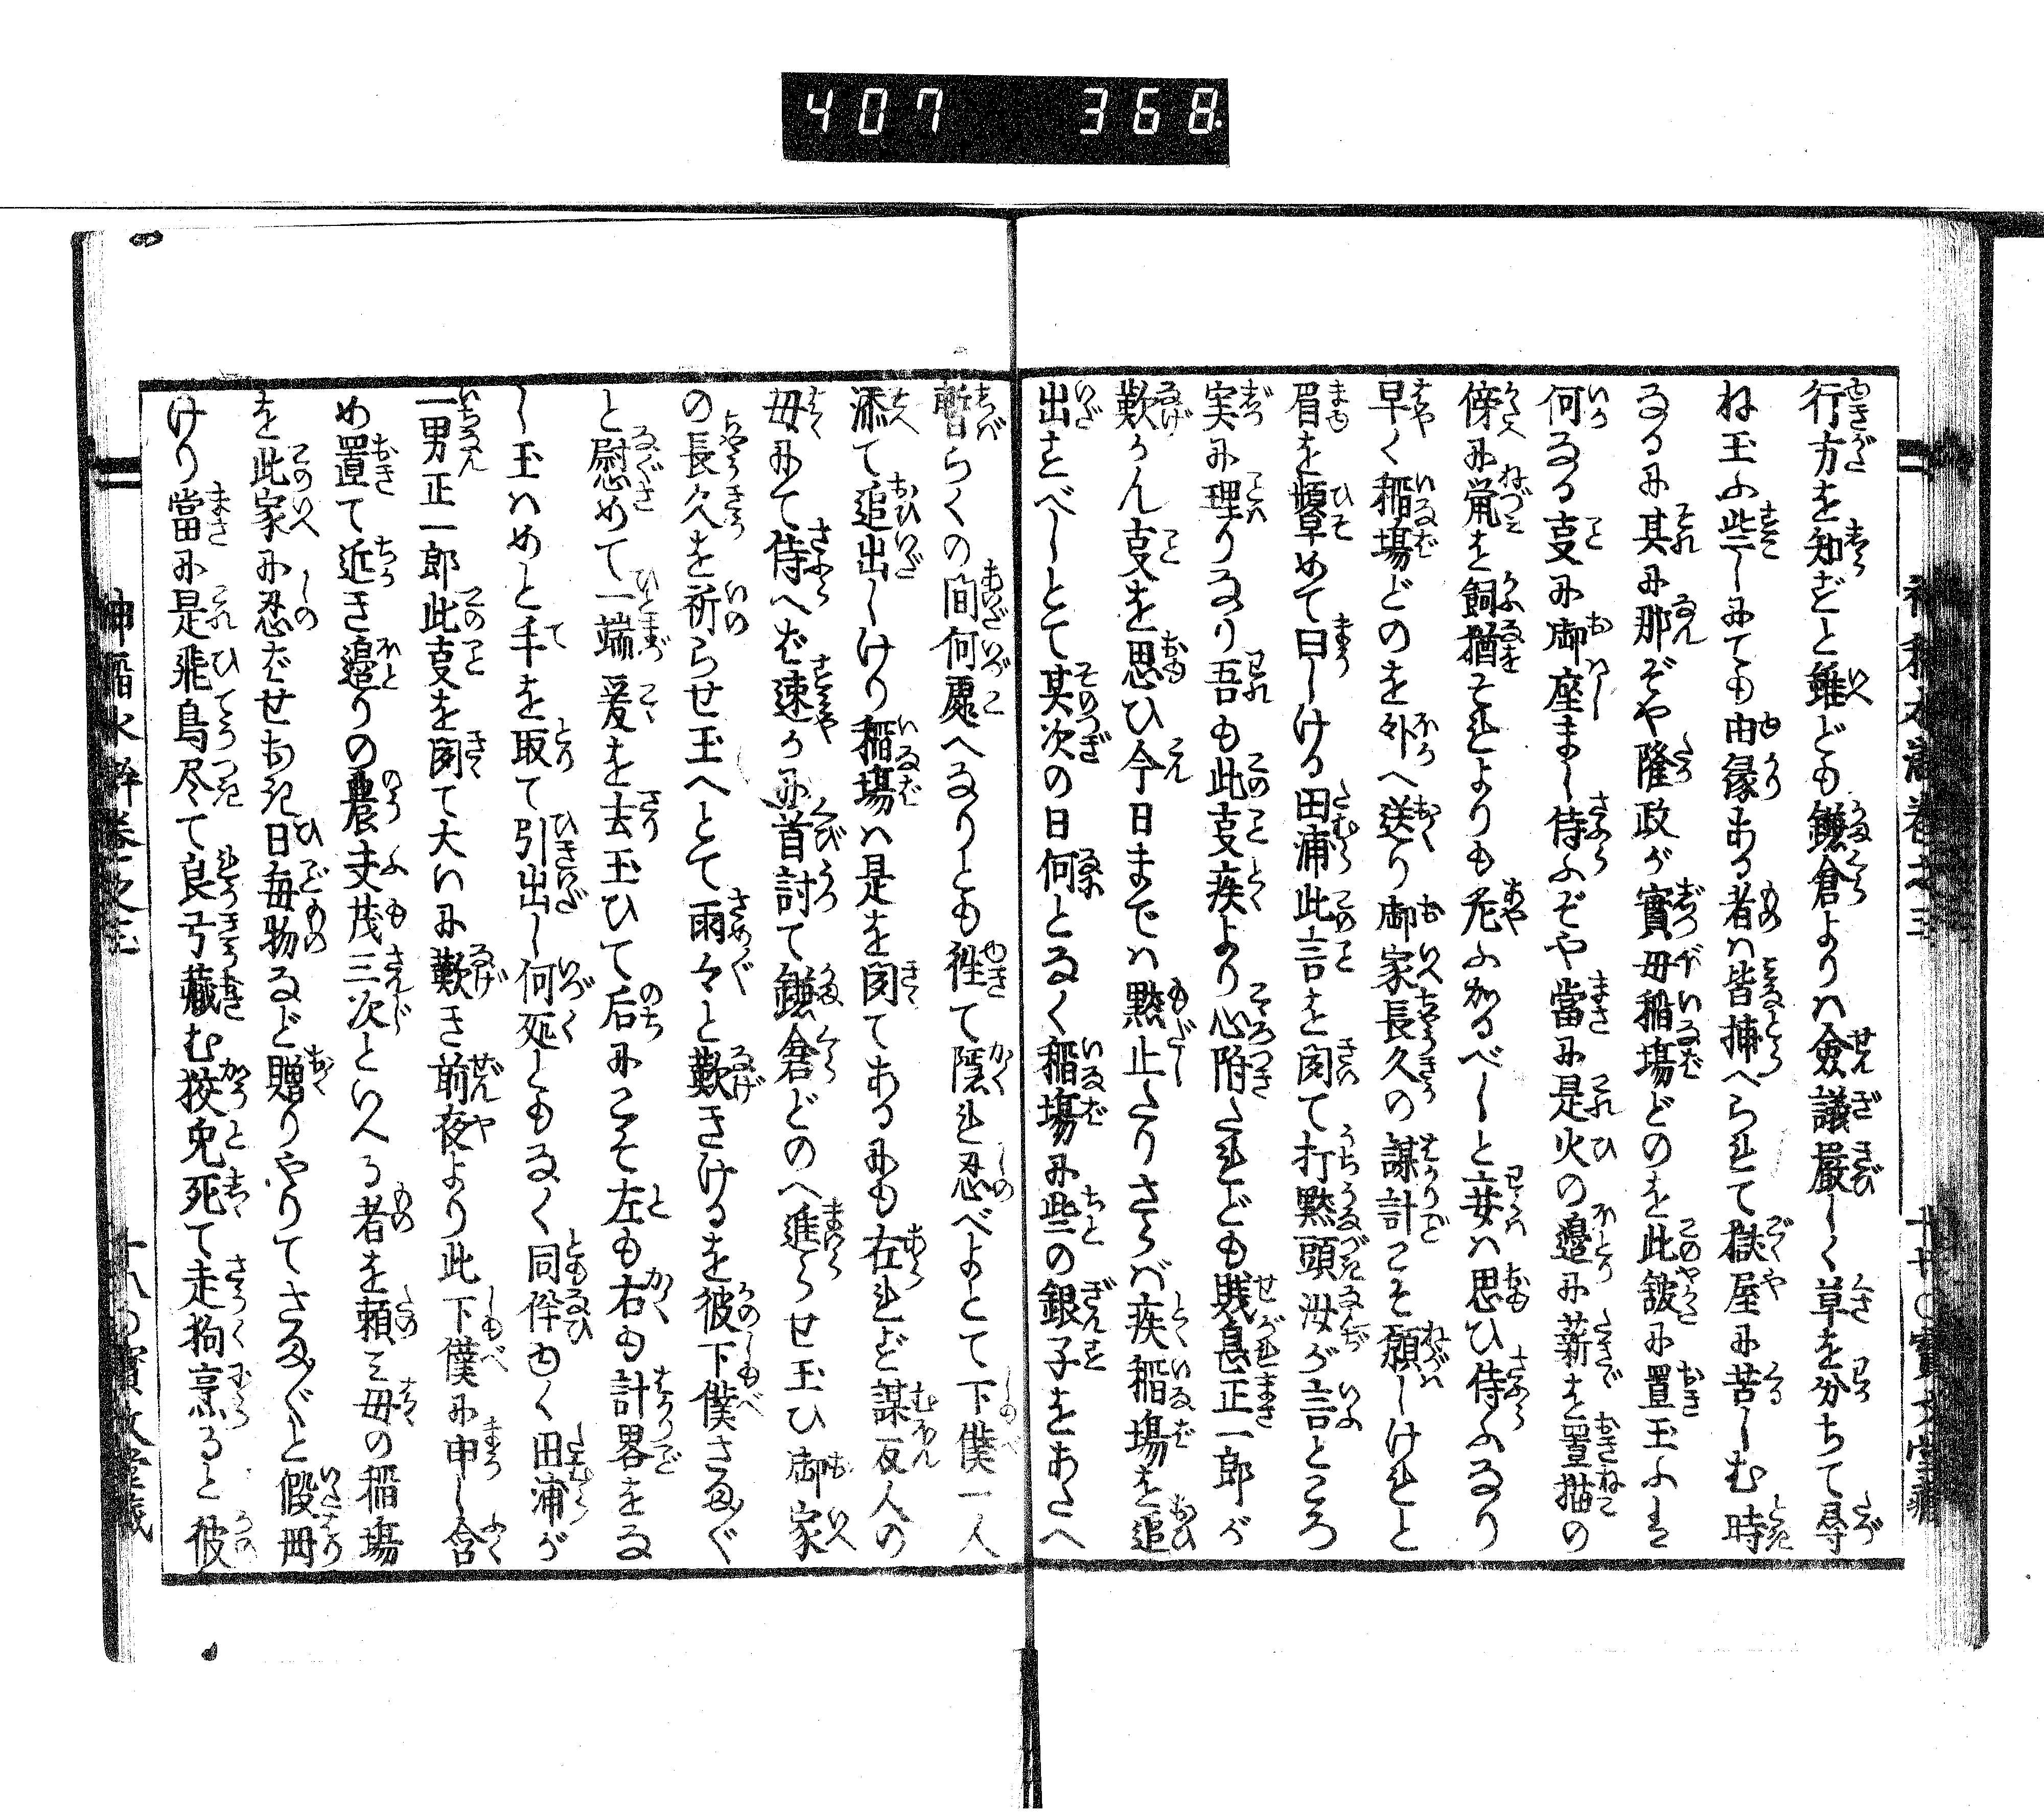 407 368
行方を知ずと雖ども鎌倉よりハ僉議嚴しく草を分ちて尋
ね玉ふ些しにても由縁ある者ハ皆捕へられて獄屋に苦しむ時
なるに其に那ぞや隆政が實母稲塲どのを此舘に置玉ふは
何なる叓に御座まし侍ふぞや當に是火の邉に薪を置猫の
傍に䑕を飼猶それよりも危ふかるべしと妾ハ思ひ侍ふなり
早く稲塲どのを外へ送り御家長久の謀計こそ願しけれと
眉を顰めて曰しける田浦此言を聞て打黙頭汝が言ところ
実に理りなり吾も此叓疾より心附たれども賎息正一郎が
歎かん叓を思ひ今日までハ黙止たりさらバ疾稲塲を追
出すべしとて其次の日何となく稲塲に些の銀子をあたへ
暫らくの間何處へなりとも徃て隠れ忍べよとて下僕一人
添て追出しけり稲塲ハ是を聞てあるにも在れど謀反人の
母にて侍へば速かに首討て鎌倉どのへ進らせ玉ひ御家
の長久を祈らせ玉へとて雨々と歎きけるを彼下僕さま〴〵
と慰めて一端爰を去玉ひて后にこそ左も右も計畧をな
し玉ハめと手を取て引出し何処ともなく同伴ゆく田浦が
一男正一郎此叓を聞て大いに歎き前夜より此下僕に申し含
め置て近き邉りの農夫茂三次といへる者を頼ミ母の稲塲
を此家に忍ばせおき日毎物など贈りやりてさま〴〵と假冊
けり當に是飛鳥尽て良弓藏む狡兔死て走狗烹ると彼
神稲水滸卷之三
十八〇寳文堂藏